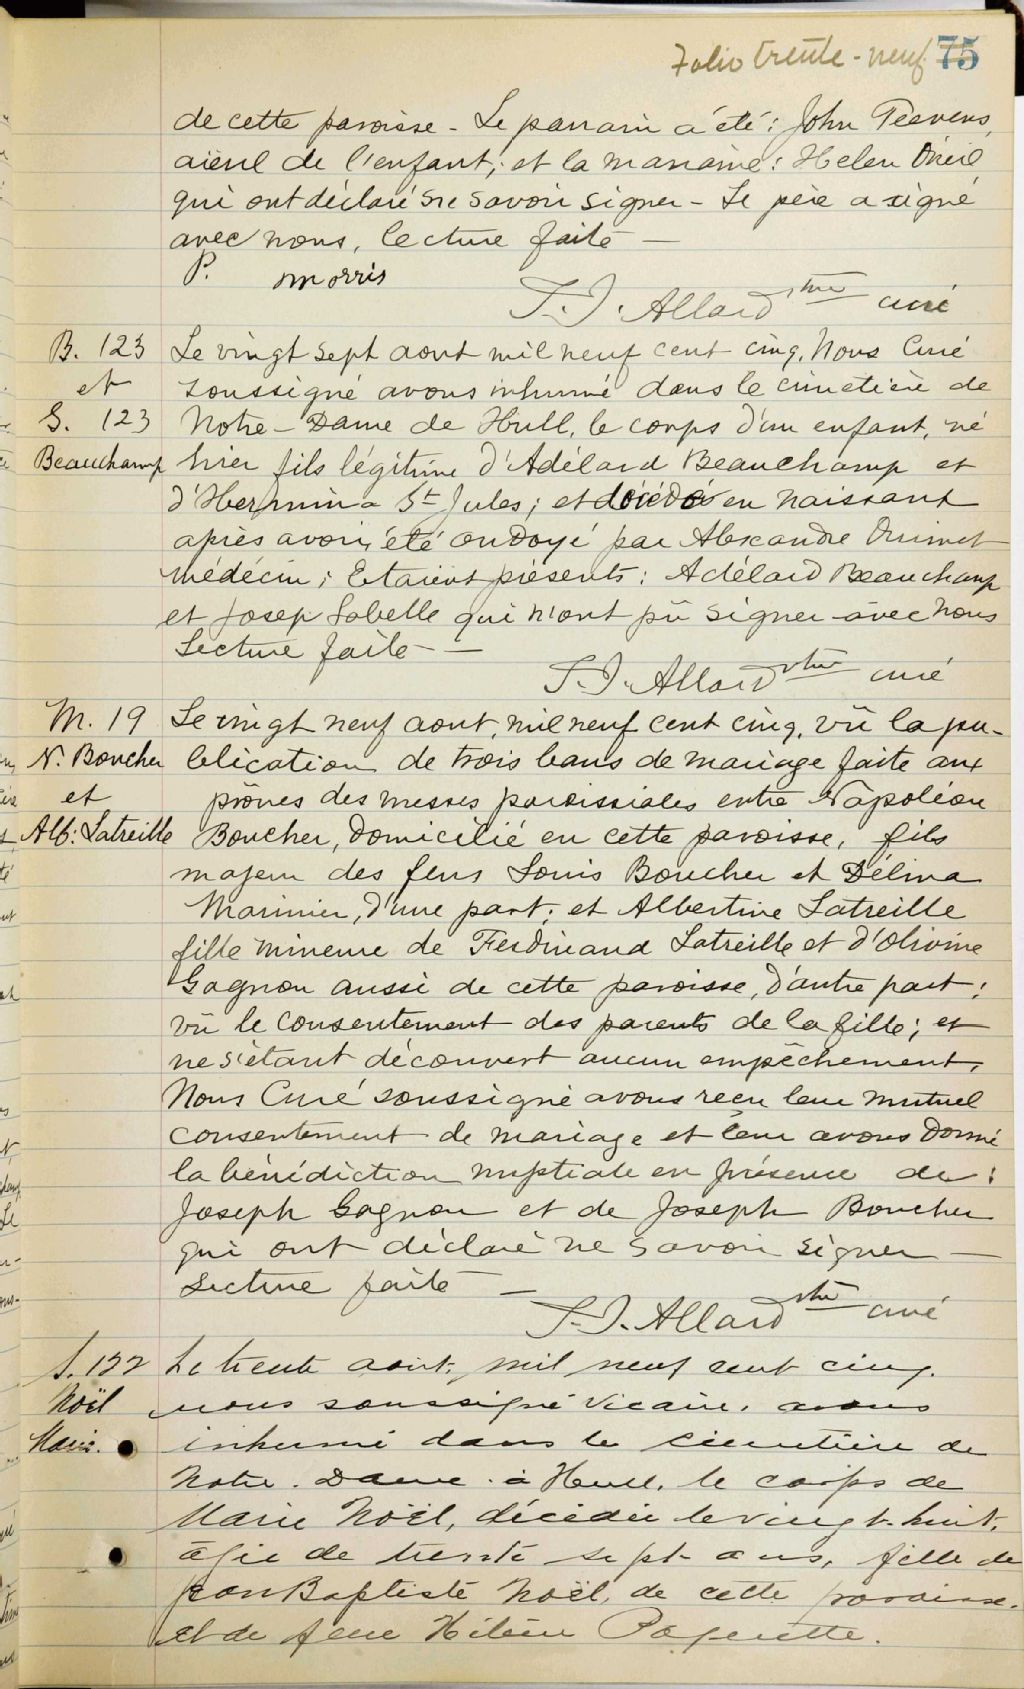 Folio trente-neuf 75
de cette paroisse - Le parrain a été: John Teevens,
aïeul de l'enfant; et la marraine: Helen Oneil
qui ont déclaré ne savoir signer - Le père a signé
avec nous, lecture faite —
P. Morris
J. J. Allard ptre curé
B. 123
et
S. 123
Beauchamp
Le vingt sept aout mil neuf cent cinq, Nous Curé
soussigné avons inhumé dans le cimetière de
Notre-Dame de Hull, le corps d'un enfant, né
hier fils légitime d'Adélard Beauchamp et
d'Hermina St Jules; et décédé en naissant
après avoir été ondoyé par Alexandre Ouimet
médécin; Etaient présents: Adélard Beauchamp
et Josep Labelle qui n'ont pû signer avec nous
Lecture faite —
J. J. Allard ptre curé
M. 19
N. Boucher
et
Alb: Latreille
Le vingt neuf aout, mil neuf cent cinq, vû la pu-
blication de trois bans de mariage faite aux
prônes des messes paroissiales entre Napoléon
Boucher, domicilié en cette paroisse, fils
majeur des feus Louis Boucher et Délina
Marinier, d'une part; et Albertine Latreille
fille mineure de Ferdinand Latreille et d'Olivine
Gagnon aussi de cette paroisse, d'autre part;
vû le consentement des parents de la fille; et
ne s'étant découvert aucun empêchement,
Nous Curé soussigné avons recu leur mutuel
consentement de mariage et leur avons donné
la bénédiction nuptiale en présence de:
Joseph Gagnon et de Joseph Boucher
qui ont déclaré ne savoir signer —
Lecture faite —
J. J. Allard ptre curé
S. 122
Noël
Marie.
Le trente août, mil neuf cent cinq,
nous soussigné vicaire, avons
inhumé dans le cimetière de
Notre-Dame à Hull, le corps de
Marie Noël, décédée le vingt-huit,
âgée de trente sept ans, fille de
Jean Baptiste Noël, de cette paroisse,
et de feue Hélène Paquette.